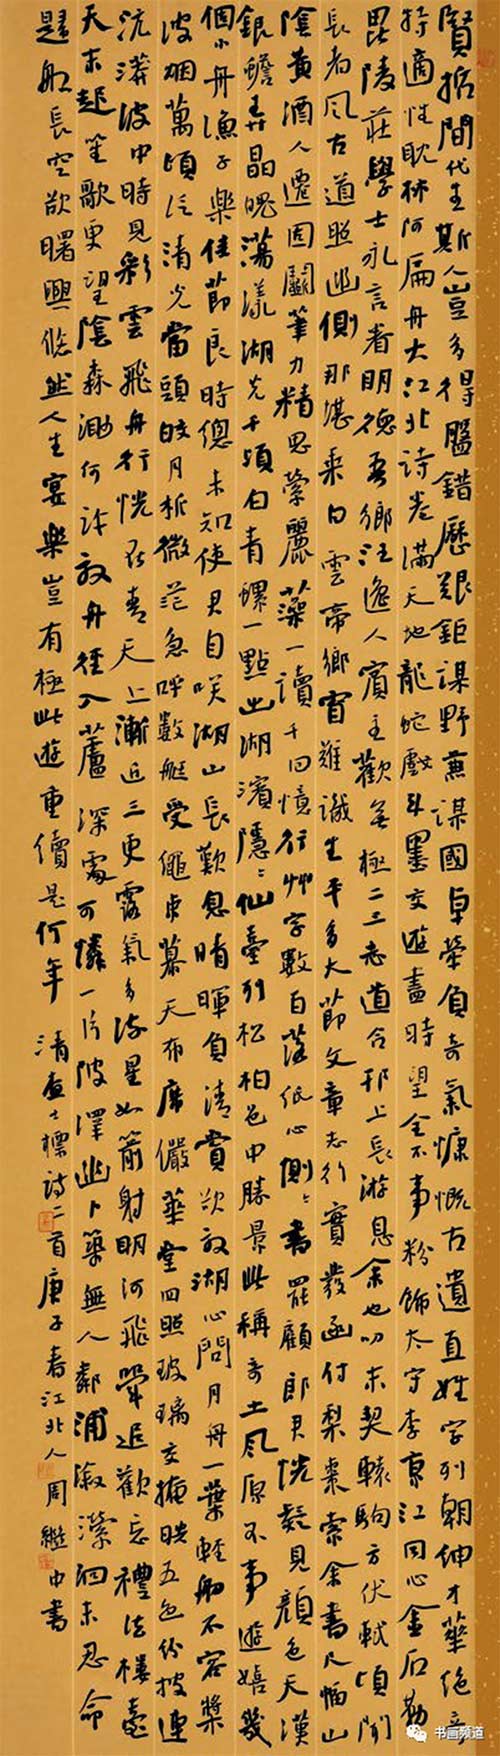 賢哲間代生斯人豈多得盤錯歷艱鉅謀野兼謀國卓犖負奇氣慷慨古遺直姓字列朝紳才華絕
持適性耽林阿扁舟大江北詩卷滿天地龍蛇戲斗墨交遊盡時望全不事粉飾太守李京江同心金石勒
毘陵莊學士永言著明德吾鄉汪逸人賓主歡無極二三老道合邗上長游息余也叨末契轅駒方伏軾頃聞
長者風古道照幽側那堪乘白雲帝鄉窅難識生平多大節文章志行實發函付梨棗索余書尺幅山
陰黃酒人還因闢筆力精思縈麗藻一讀千回憶行艸字數百落紙心側側書罷顧郎君恍疑見顏色天漢
銀蟾弄晶魄蕩漾湖光千頃白青螺一點出湖濱隱隱仙臺列松柏邑中勝景此稱奇土風原不事遊嬉幾
個小舟漁子樂佳節良時總未知使君自咲湖山長歎息晴暉負清賞欲放湖心問月舟一葉輕舠不容槳
波烟萬頃泛清光當頭皎月析微茫急呼數艇受繩束幕天布席儼華堂四照玻璃交掩映五色份披連
沆漭波中時見彩雲飛舟行恍在青天上漸近三更露氣多流星如箭射明河飛觥追歡忘禮法樓臺
天末起笙歌更望陰森渺何許放舟徑入蘆深處可憐一片陂澤幽卜築無人鄰浦漵縈洄未忍命
歸船長空欲曙興悠然人生宴樂豈有極此遊重續是何年 清查士標詩二首庚子春江北人周繼中書
书画频道